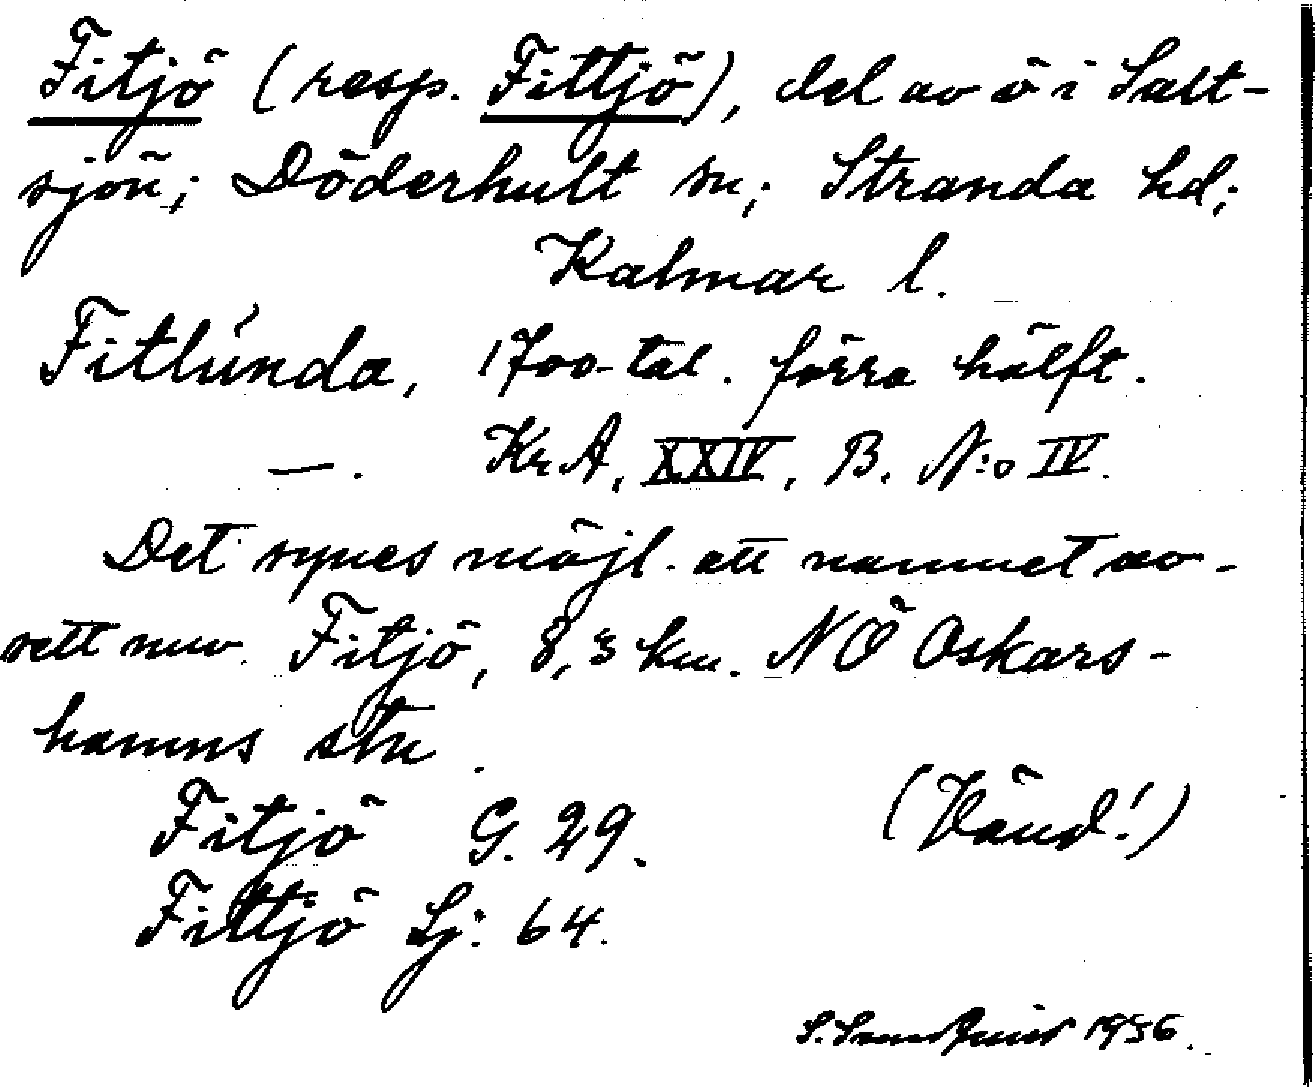 Fitjö (resp. Fittjö), del av ö i Salt-
sjön; Döderhult sn; Stranda hd;
Kalmar l.
Fitlúnda, 1700-tal. förra hälft.
—. Kr A, XXIV, B. N:o IV.
Det synes möjl. att namnet av-
sett nuv. Fitjö, 8,3 km. NÖ Oskars-
hamns stn.
Fitjö G. 29. (Vänd!)
Fittjö Sj: 64.
1956.